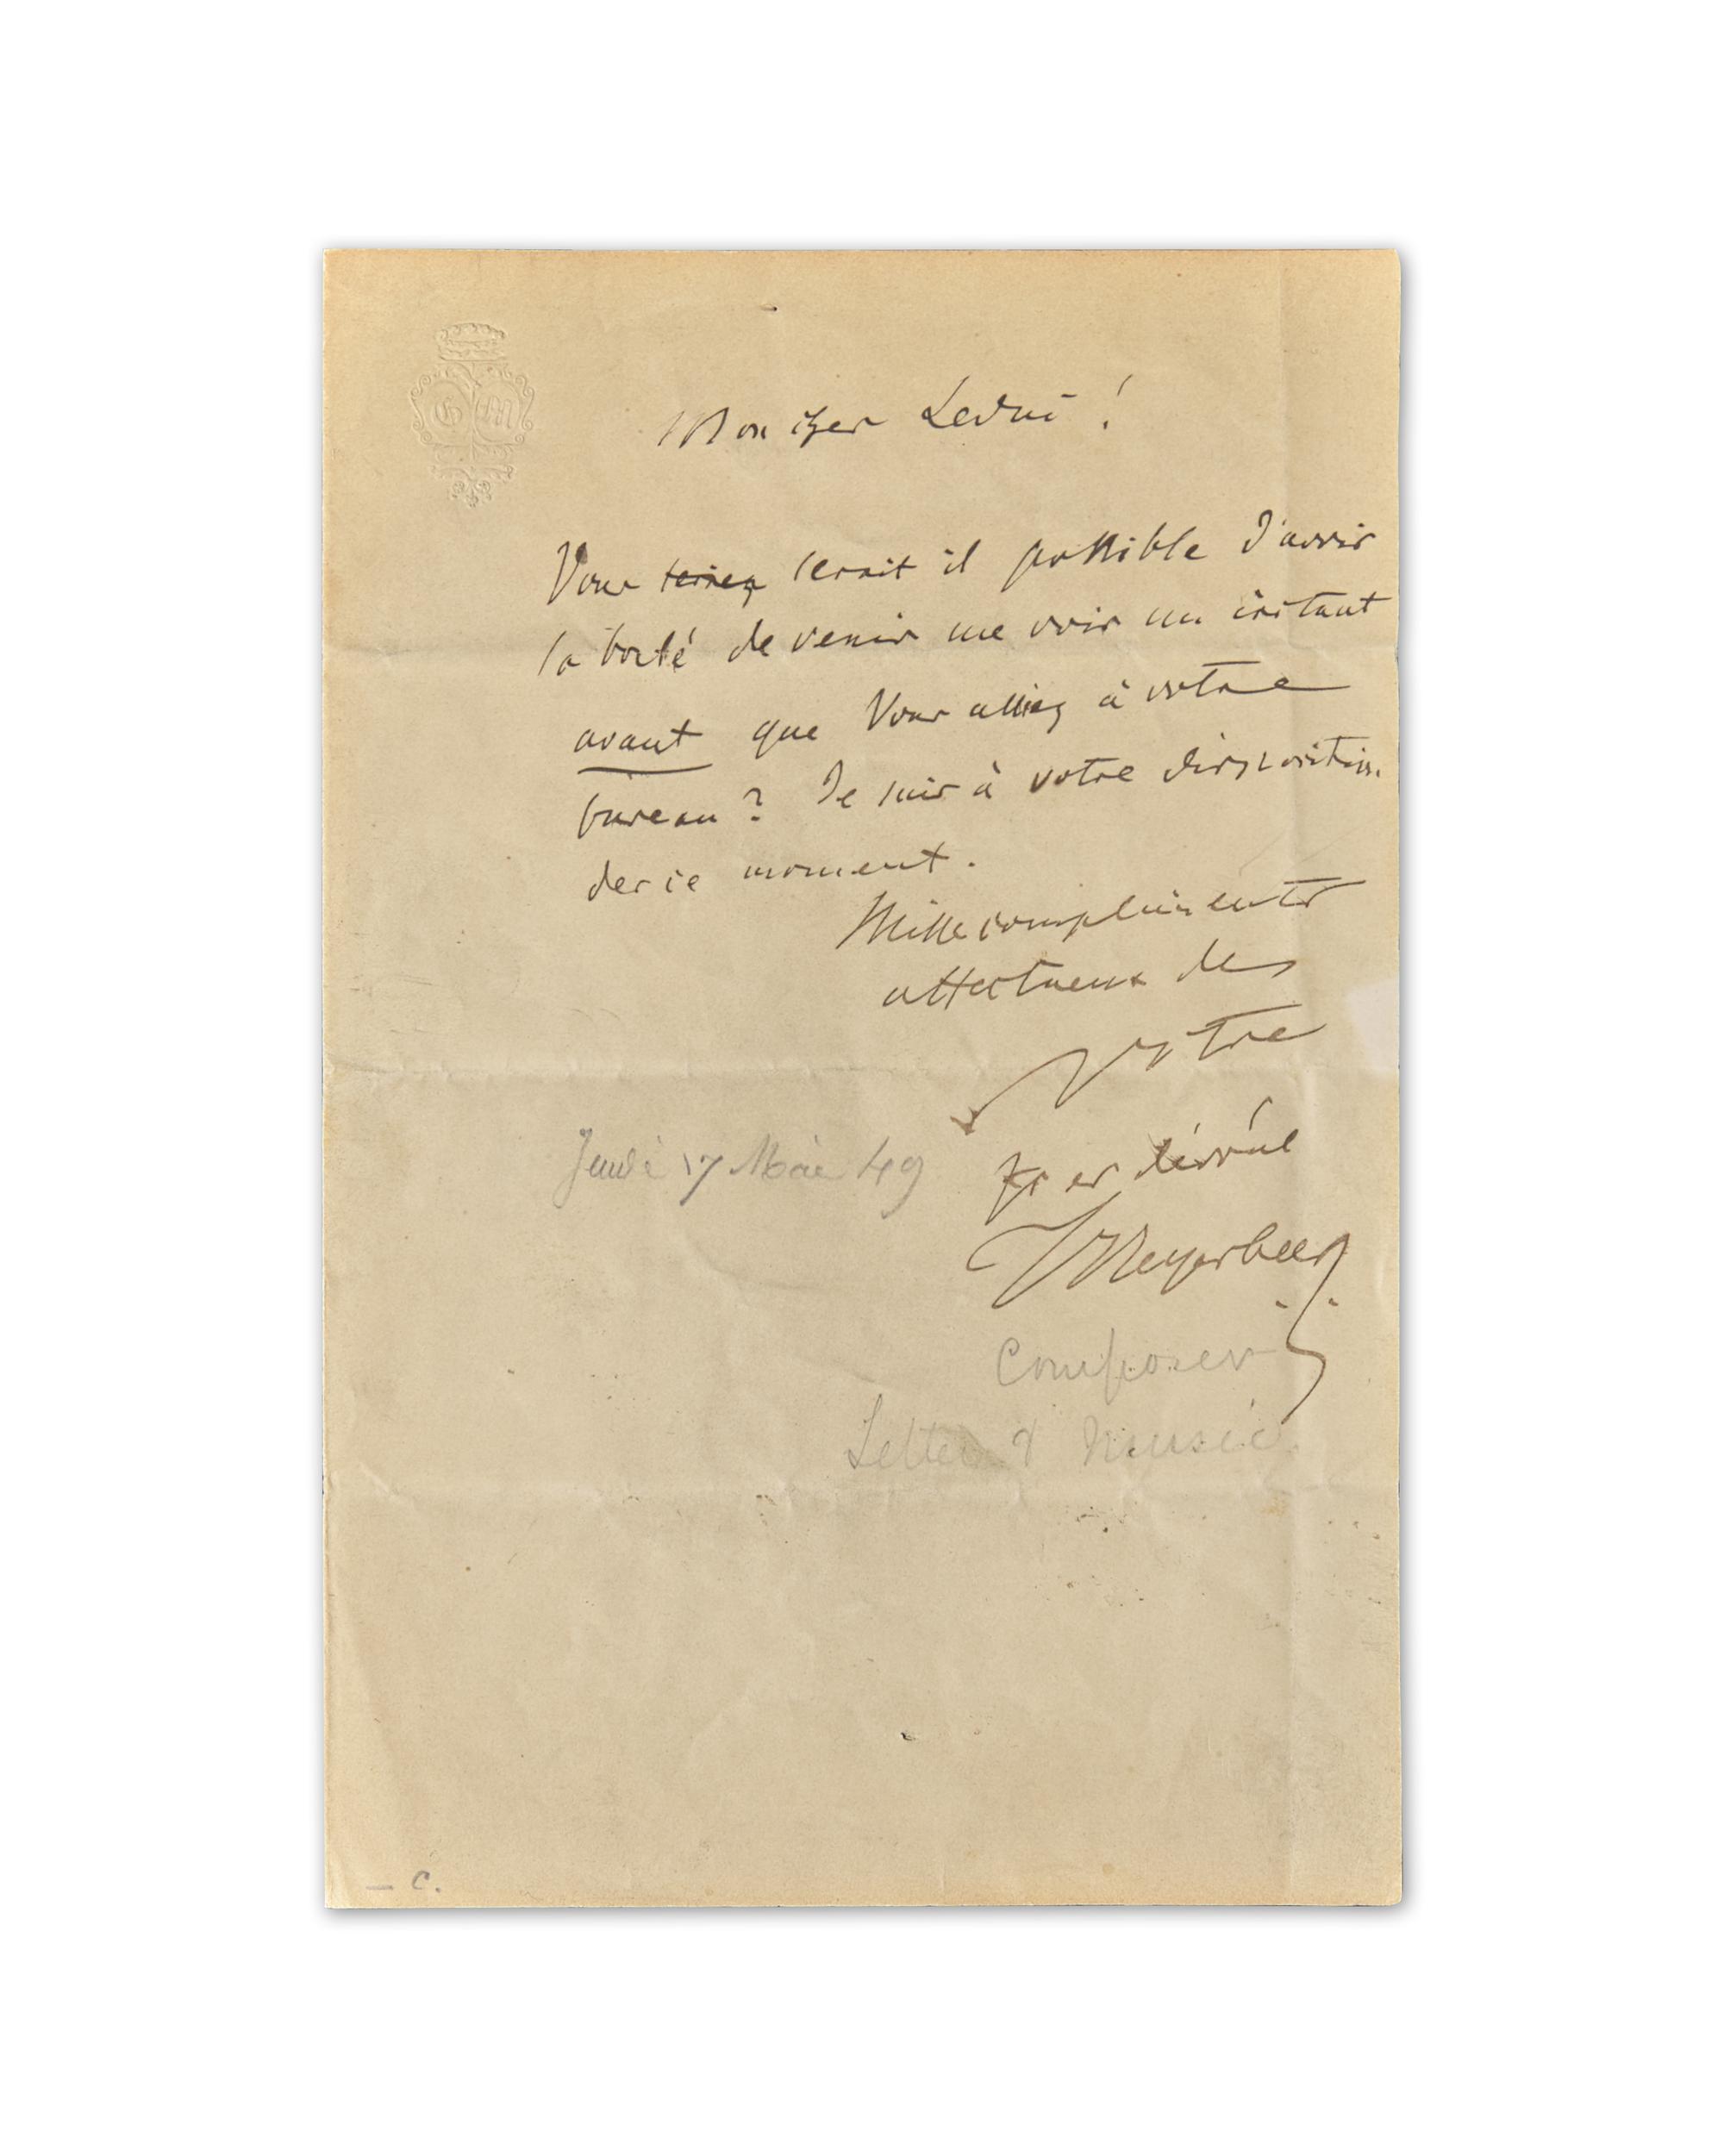 G M
Mon cher Leduc !
Vous seriez serait il possible d'avoir
la bonté de venir me voir un instant
avant que Vous alliez à votre
bureau ? Je suis à votre disposition
des ce moment.
Mille compliments
affectueux de
votre
devoué
Meyerbeer
Jeudi 17 Mai 49
Composer
Letter & Music
– C.